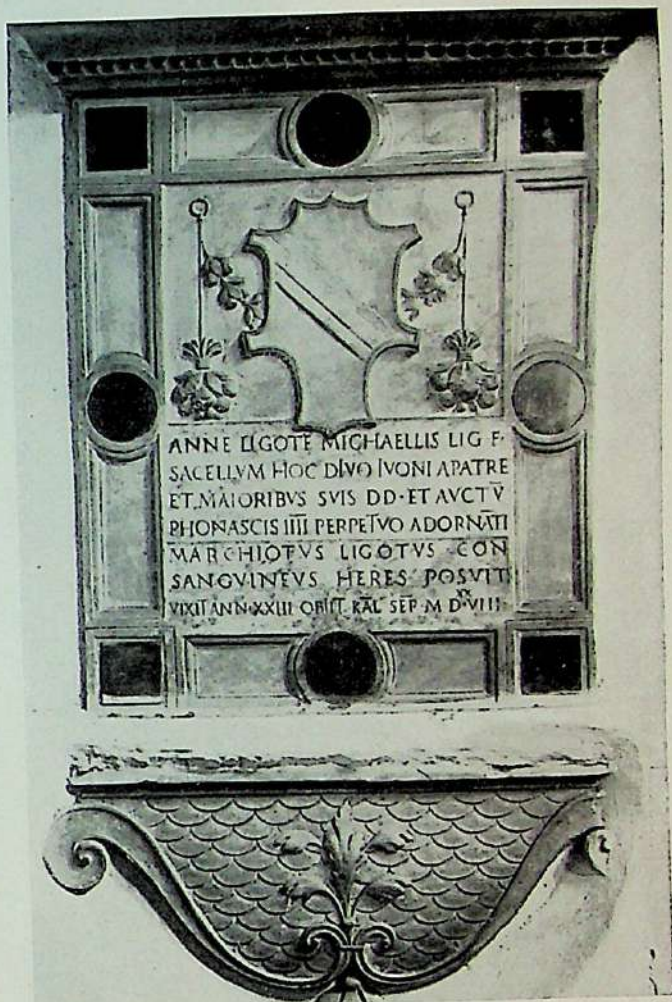 ANNE LIGOTE MICHAELLIS LIG F·
SACELLVM HOC DIVO IVONI APATRE
ET MAIORIBVS SVIS DD·ET AVCTV̄
PHONASCIS IIII PERPETVO ADORNĀTI
MARCHIOTVS LIGOTVS CON
SANGVINEVS HERES POSVIT
VIXIT ANN·XXIII OBIIT KĀL SEP̄ M D XX VIII